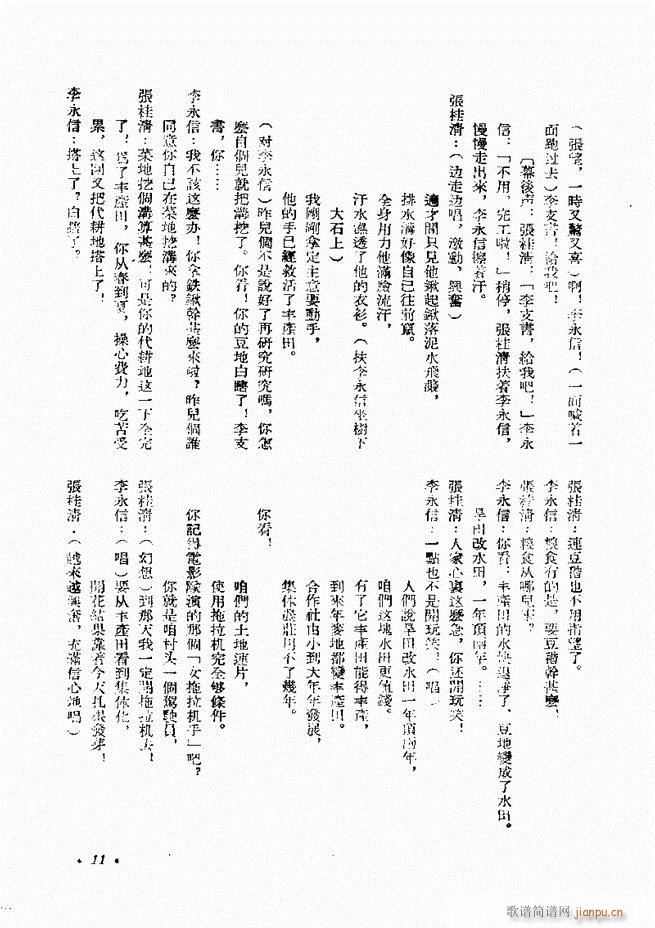 （張望，一時又驚又喜）啊！李永信！（一面喊着一
面跑过去）李支書！給我吧！
〔幕後声：張桂淸：「李支書，給我吧！」李永
信：「不用，完工啦！」稍停，張桂淸扶着李永信，
慢慢走出來，李永信擦着汗。
張桂淸：（边走边唱，激動，興奮）
適才間只見他鍬起鍬落泥水飛濺，
排水溝好像自己往前竄。
全身用力他滿臉流汗，
汗水濕透了他的衣衫。（扶李永信坐樹下
大石上）
我剛剛拿定主意要動手，
他的手已經救活了丰產田。
（对李永信）昨兒個不是說好了再研究研究嗎，你怎
麽自個兒就把溝挖了。你看！你的豆地白瞎了！李支
書，你……
李永信：我不該这麽办！你拿鉄鍬幹甚麽來啦？昨兒個誰
同意你自己在菜地挖溝來的？
張桂淸：菜地挖個溝算甚麽，可是你的代耕地这一下全完
了！爲了丰產田，你从春到夏，操心費力，吃苦受
累，这回又把代耕地搭上了！
李永信：搭上了？白瞎了？
張桂淸：連豆醬也不用指望了。
李永信：粮食有的是，要豆醬幹甚麽。
張桂淸：粮食从哪兒來？
李永信：你看！丰產田的水快退淨了，豆地變成了水田。
旱田改水田，一年頂兩年。……
張桂淸：人家心裏这麽急，你还開玩笑！
李永信：一點也不是開玩笑！（唱）
人們說旱田改水田一年頂兩年，
咱們这塊水田更值錢。
有了它丰產田能得丰產，
到來年麥地都變丰產田。
合作社由小到大年年發展，
集体農莊用不了幾年。
你看！
咱們的土地連片，
使用拖拉机完全够條件。
你記得電影隊演的那個「女拖拉机手」吧？
你就是咱村头一個駕駛員，
張桂淸：（幻想）到那天我一定開拖拉机去！
李永信：（唱）要从丰產田看到集体化，
開花結果靠着今天扎根發芽！
張桂淸：（越來越興奮，充滿信心地唱）
· 11 ·
歌谱简谱网 jianpu.cn